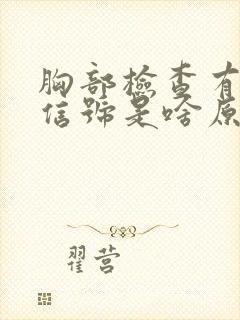 胸部檢查有
信號是啥原
翟营